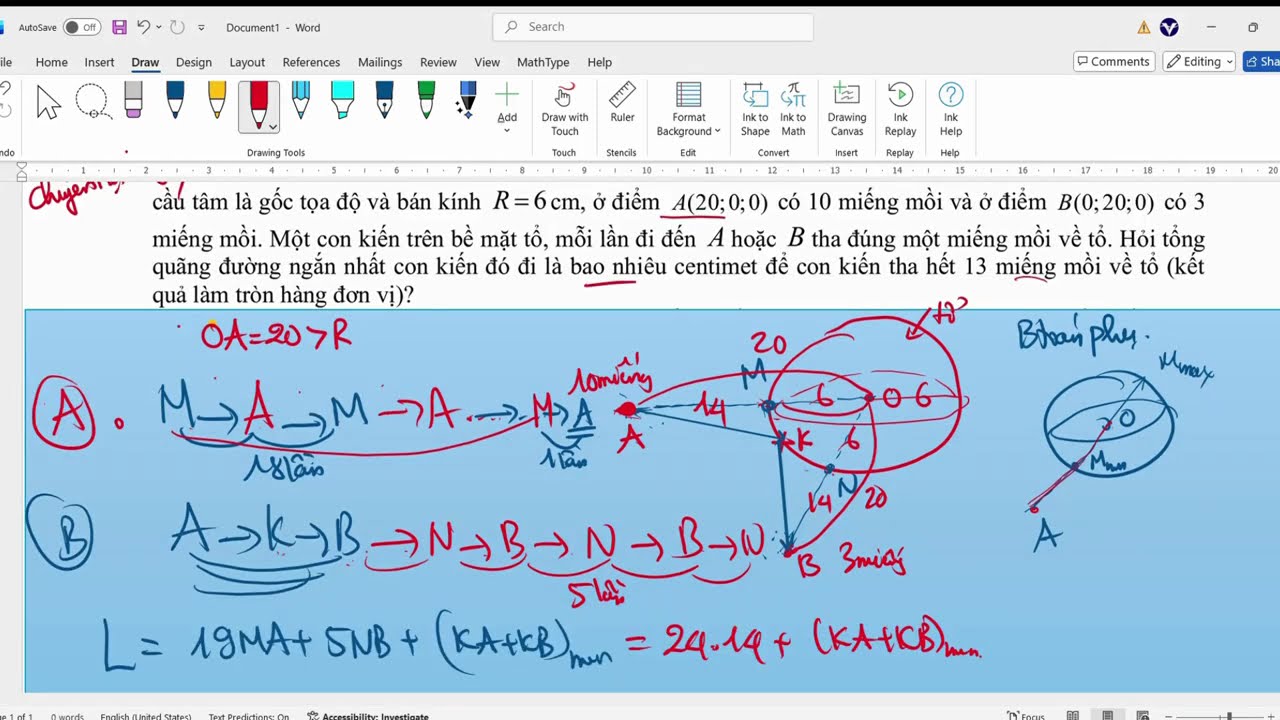 AutoSave Off Document1 - Word Search
ile Home Insert Draw Design Layout References Mailings Review View MathType Help Comments Editing Sha
Add Draw with Touch Ruler Format Background Ink to Shape Ink to Math Drawing Canvas Ink Replay Ink Help
ndo Drawing Tools Touch Stencils Edit Convert Insert Replay Help
1 2 3 4 5 6 7 8 9 10 11 12 13 14 15 16 17 18 19 20
cầu tâm là gốc tọa độ và bán kính R = 6 cm, ở điểm A(20;0;0) có 10 miếng mồi và ở điểm B(0;20;0) có 3
miếng mồi. Một con kiến trên bề mặt tổ, mỗi lần đi đến A hoặc B tha đúng một miếng mồi về tổ. Hỏi tổng
quãng đường ngắn nhất con kiến đó đi là bao nhiêu centimet để con kiến tha hết 13 miếng mồi về tổ (kết
quả làm tròn hàng đơn vị)?
OA=20>R
20
Btoán phụ.
Mmax
10 miếng
M
A. M→A→M→A.→M→A
A 14 6 O 6
O
K 6
18 lần 1 lần
Mmin
N
14 20
A
B A→K→B→N→B→N→B→N
B 3 miếng
5 lần
L = 19MA+5NB+(KA+KB)min = 24.14+(KA+KB)min.
ge 1 of 1 0 words English (United States) Text Predictions: On Accessibility: Investigate Focus